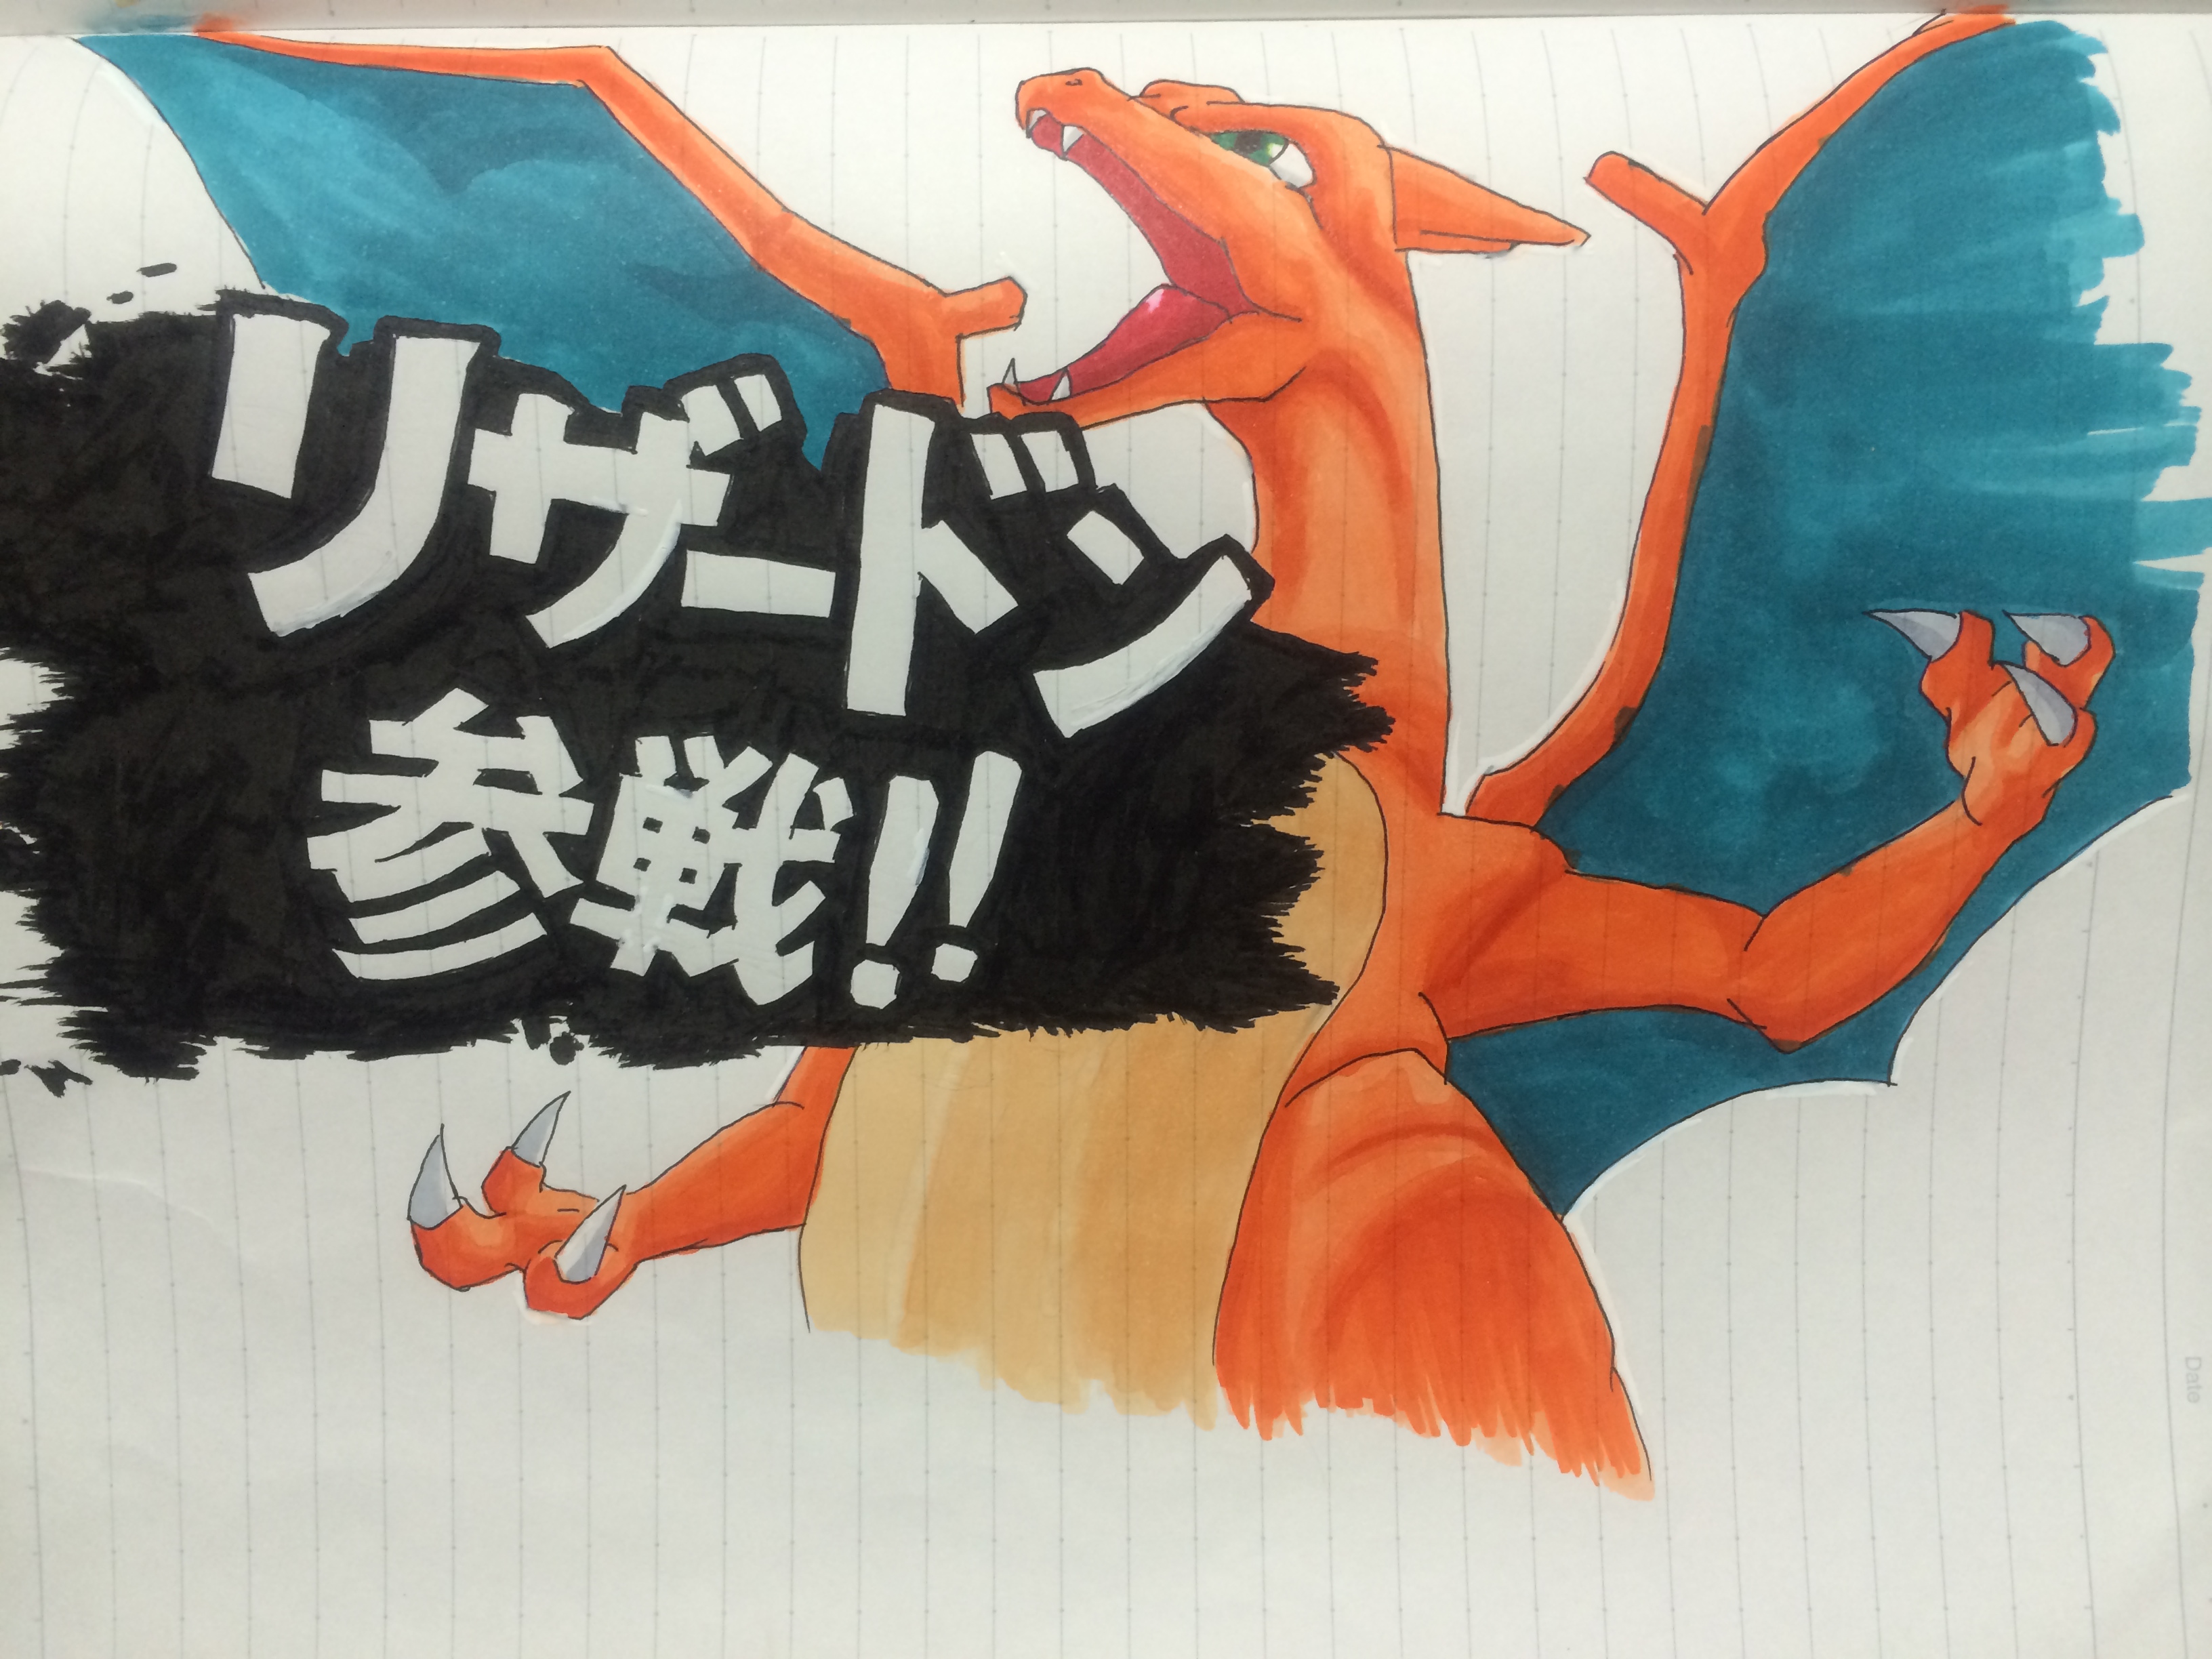 リザードン
参戦!!
Date